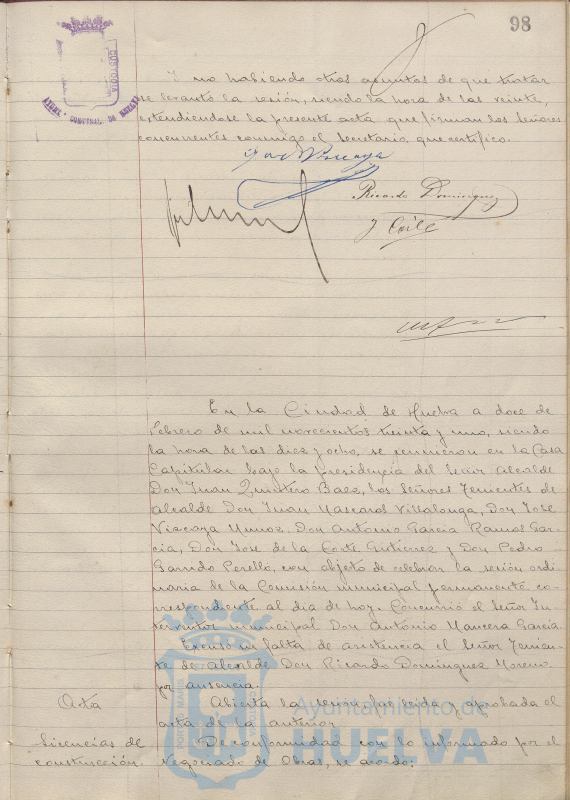 98
Y no habiendo otros asuntos de que tratar
se levantó la sesión, siendo la hora de las veinte,
extendiendose la presente acta que firman los Señores
concurrentes conmigo el Secretario que certifico.
José Vizcaya
Ricardo Dominguez
J Corte
En la Ciudad de Huelva a doce de
Febrero de mil novecientos treinta y uno, siendo
la hora de las diez y ocho, se reunieron en la Casa
Capitular bajo la presidencia del Señor Alcalde
Don Juan Quintero Baez, los Señores Tenientes de
Alcalde Don Juan Mascaros Villalonga, Don José
Vizcaya Muñoz, Don Antonio Garcia Ramos Gar-
cia, Don José de la Corte Gutierrez y Don Pedro
Garrido Perelló, con objeto de celebrar la sesión ordi-
naria de la Comisión municipal permanente co-
rrespondiente al dia de hoy. Concurrió el Señor In-
terventor municipal Don Antonio Mancera Garcia.
Excusó su falta de asistencia el Señor Tenien-
te de Alcalde Don Ricardo Dominguez Moreno
por ausencia.
Acta Abierta la sesión, fue leida y aprobada el
acta de la anterior.
Licencias de De conformidad con lo informado por el
construcción. Negociado de Obras, se acordó:
Ayuntamiento de
HUELVA